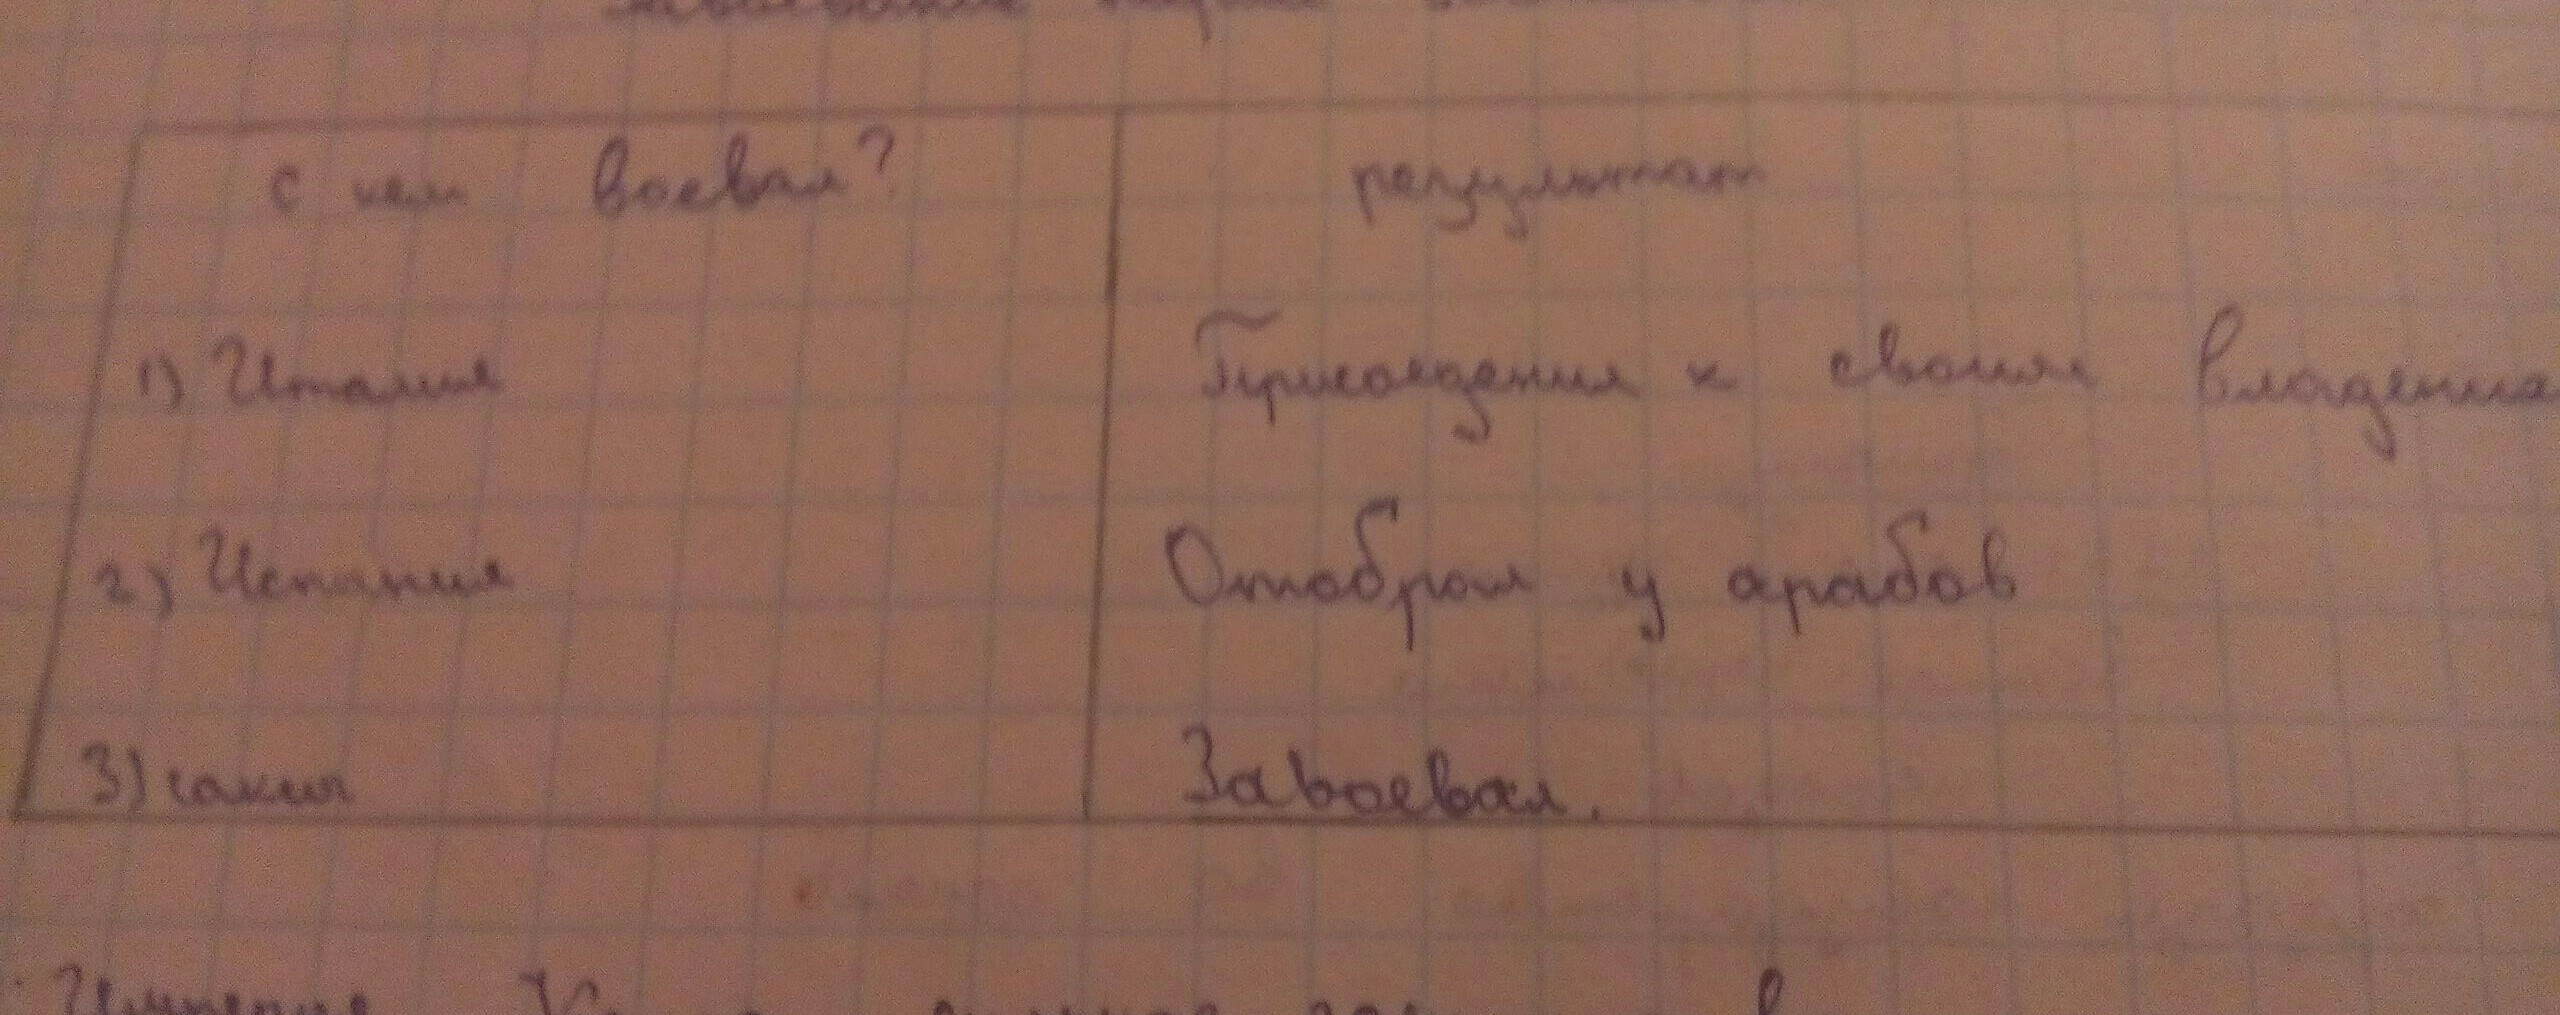 с кем воевал? результат
1) Италия Присоедения к своим владениа
2) Испания Отобрал у арабов
3) саксы Завоевал.